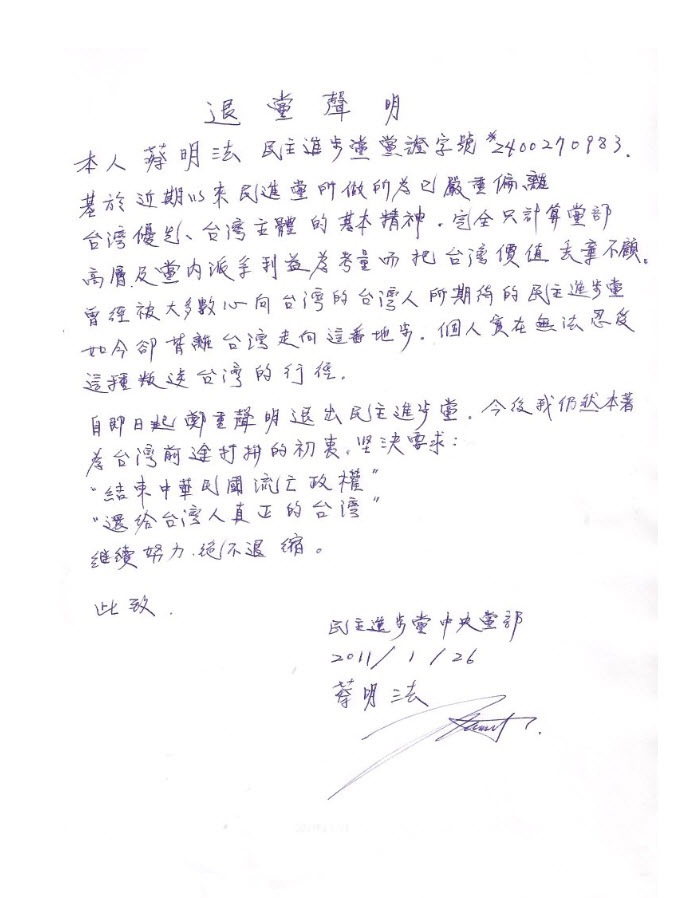 退黨聲明
本人 蔡明法 民主進步黨黨證字號 #2400270983.
基於近期以來民進黨所做所為已嚴重偏離
台灣優先、台灣主體的基本精神，完全只計算黨部
高層及黨內派系利益為考量而把台灣價值丟棄不顧。
曾經被大多數心向台灣的台灣人所期待的民主進步黨
如今卻背離台灣走向這番地步，個人實在無法忍受
這種叛逆台灣的行徑.
自即日起鄭重聲明退出民主進步黨，今後我仍然本著
為台灣前途打拼的初衷，坚決要求：
“結束中華民國流亡政權”
“還給台灣人真正的台灣”
继續努力，絕不退縮。
此致.
民主進步黨中央黨部
2011/1/26
蔡明法